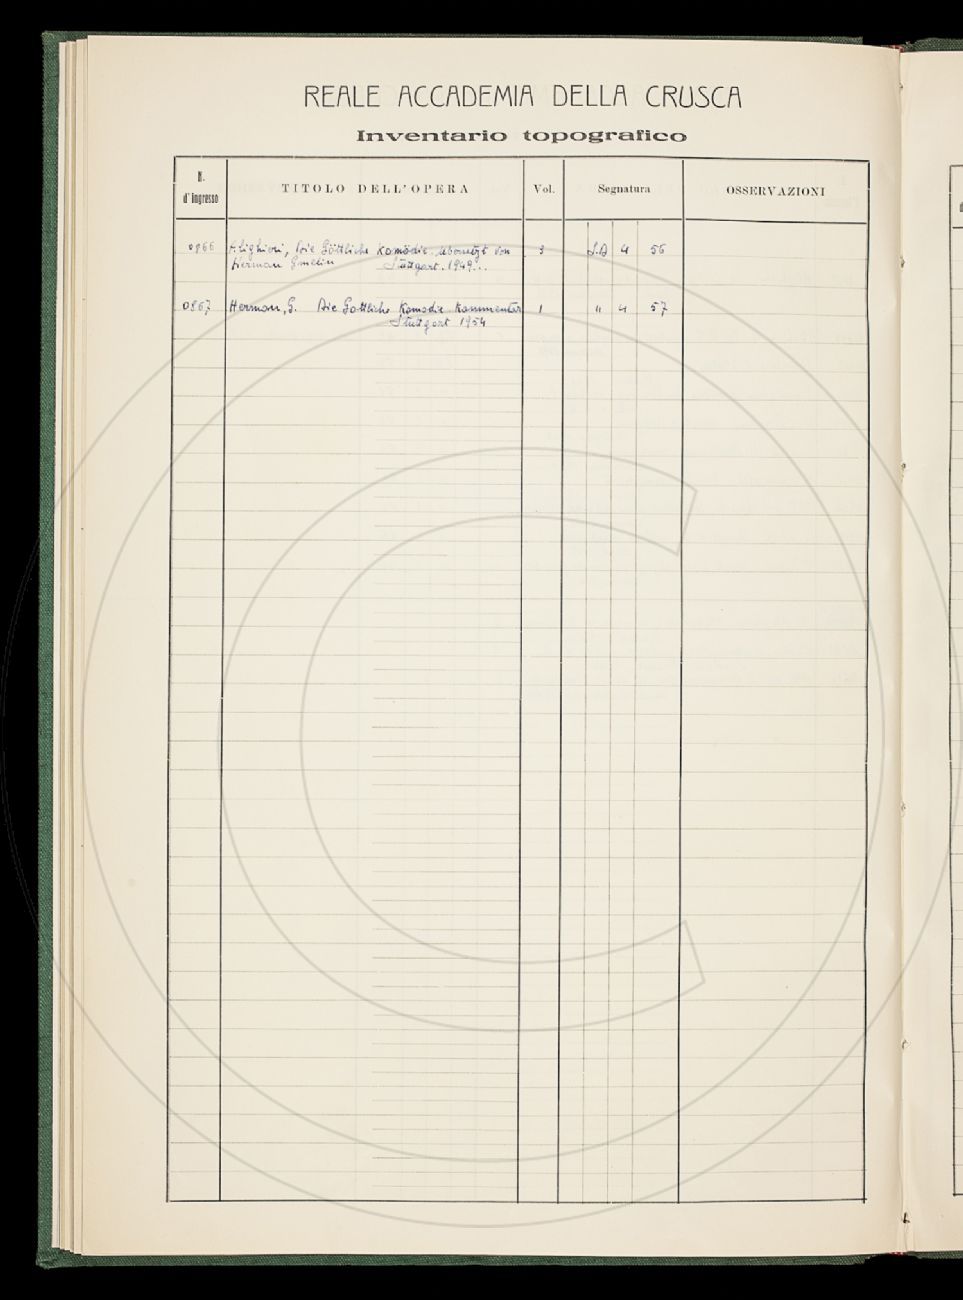 REALE ACCADEMIA DELLA CRUSCA
Inventario topografico
N. d'ingresso TITOLO DELL'OPERA Vol. Segnatura OSSERVAZIONI
0866 Alighieri, Die Göttliche Komödie. Übersetzt von 3 S.D 4 56
Herman Gmelin Stuttgart. 1949...
0867 Herman, G. Die Gottliche Komodie Kommentar 1 " 4 57
Stuttgart 1954